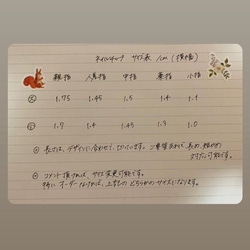 ネイルチップ サイズ表 /cm (横幅)
親指 人差指 中指 薬指 小指
大 1.75 1.45 1.5 1.4 1.1
1.7 1.4 1.45 1.3 1.0
◎ 長さは、デザインに合わせて、切っています。ご希望あれば、長め、短めの
対応可能です。
◎ コメント頂ければ、サイズ変更可能です。
特に オーダーなければ、上記の どちらかの サイズになります。